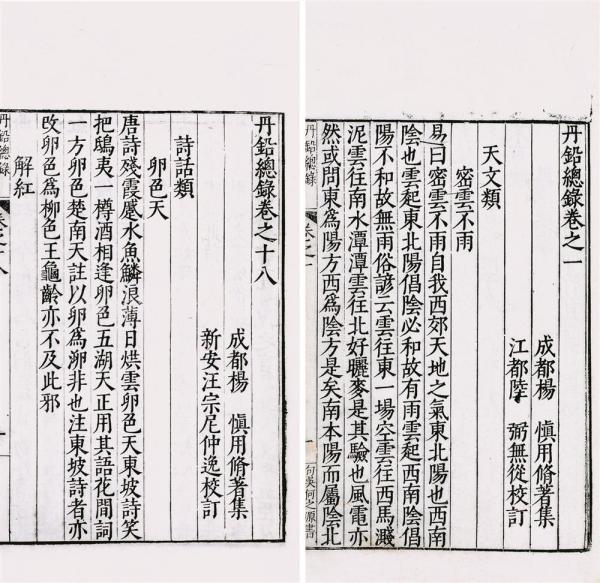 丹鉛總錄卷之一
成都楊 慎用脩著集
江都陸 弼無從校訂
天文類
密雲不雨
易曰密雲不雨自我西郊天地之氣東北陽也西南
陰也雲起東北陽倡陰必和故有雨雲起西南陰倡
陽不和故無雨俗諺云雲往東一場空雲往西馬濺
泥雲往南水潭潭雲往北好曬麥是其驗也風電亦
然或問東為陽方西為陰方是矣南本陽而屬陰北
丹鉛總錄 卷之一 句吳何之源書
丹鉛總錄卷之十八
成都楊 慎用脩著集
新安汪宗尼仲逸校訂
詩話類
卵色天
唐詩殘霞蹙水魚鱗浪薄日烘雲卵色天東坡詩笑
把鴟夷一樽酒相逢卵色五湖天正用其語花間詞
一方卵色楚南天註以卵為泖非也注東坡詩者亦
改卵色為柳色王龜齡亦不及此邪
解紅
丹鉛總錄 卷之十八